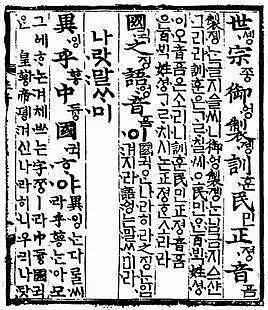 世솅宗종御ᅌᅥᆼ製졩訓훈民민正져ᇰ音ᅙᅳᆷ
製졩는글지ᅀᅳᆯ씨니御ᅌᅥᆼ製졩는님금지ᅀᅳ샨
그리라訓훈은ᄀᆞᄅᆞ칠씨오民민ᄋᆞᆫ百ᄇᆡᆨ姓셔ᇰ
이오音ᅙᅳᆷ은소리니訓훈民민正져ᇰ音ᅙᅳᆷ
은百ᄇᆡᆨ姓셔ᇰᄀᆞᄅᆞ치시논正져ᇰᄒᆞᆫ소리라
國귁之징語ᅌᅥᆼ音ᅙᅳᆷ이
國귁ᄋᆞᆫ나라히라之징ᄂᆞᆫ입
겨지라語ᅌᅥᆼ는말ᄊᆞ미라
나랏말ᄊᆞ미
異잉乎ᅘᅩᆼ中듀ᇰ國귁ᄒᆞ야
異잉ᄂᆞᆫ다ᄅᆞᆯ씨라乎ᅘᅩᆼ는아모
그ᅌᅦᄒᆞ논겨체ᄡᅳ는字ᄍᆞᆼㅣ라中듀ᇰ國귁
ᄋᆞᆫ皇ᅘᅪᇰ帝뎽겨신나라히니우리나랏